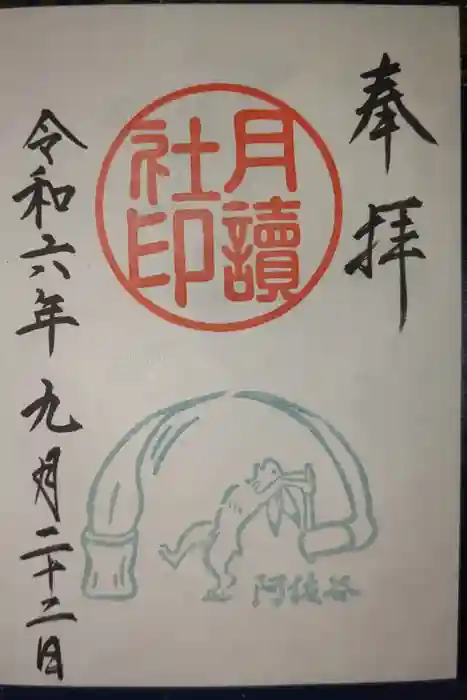 奉拝
月讀
社印
阿佐谷
令和六年九月二十二日